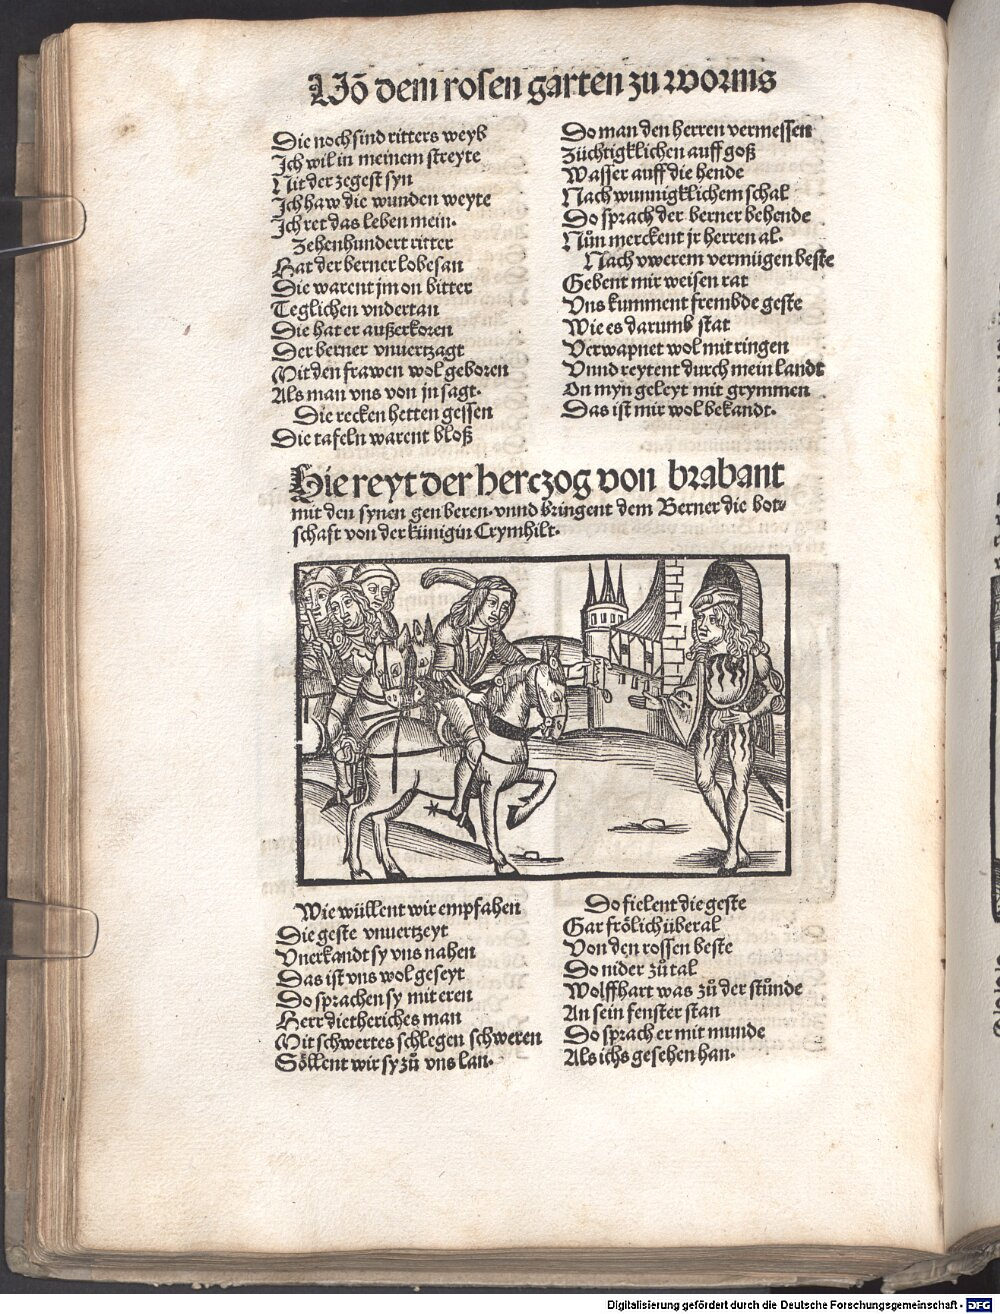 Võ dem rosen garten zu worms
Die noch sind ritters weyb
Ich wil in meinem streyte
Nit der zegest syn
Ich haw die wunden weyte
Ich ret das leben mein.
Zehenhundert ritter
Hat der berner lobesan
Die warent jm on bitter
Teglichen vndertan
Die hat er außerkoren
Der berner vnuertzagt
Mit den frawen wol geboren
Als man vns von jn sagt.
Die recken hetten gessen
Die tafeln warent bloß
Do man den herren vermessen
Züchtigklichen auff goß
Wasser auff die hende
Nach wunnigklichem schal
Do sprach der berner behende
Nůn merckent jr herren al.
Nach vwerem vermügen beste
Gebent mir weisen rat
Vns kumment frembde geste
Wie es darumb stat
Verwapnet wol mit ringen
Vnnd reytent durch mein landt
On myn geleyt mit grymmen
Das ist mir wol bekandt.
Hie reyt der herczog von brabant
mit den synen gen beren. vnnd bringent dem Berner die bot⸗
schaft von der künigin Crymhilt.
Wie wüllent wir empfahen
Die geste vnuertzeyt
Vnerkandt sy vns nahen
Das ist vns wol geseyt
Do sprachen sy mit eren
Herr dietheriches man
Mit schwertes schlegen schweren
Söllent wir sy zů vns lan.
Do fielent die geste
Gar frölich überal
Von den rossen beste
Do nider zů tal
Wolffhart was zů der stůnde
An sein fenster stan
Do sprach er mit munde
Als ichs gesehen han.
Digitalisierung gefördert durch die Deutsche Forschungsgemeinschaft - DFG